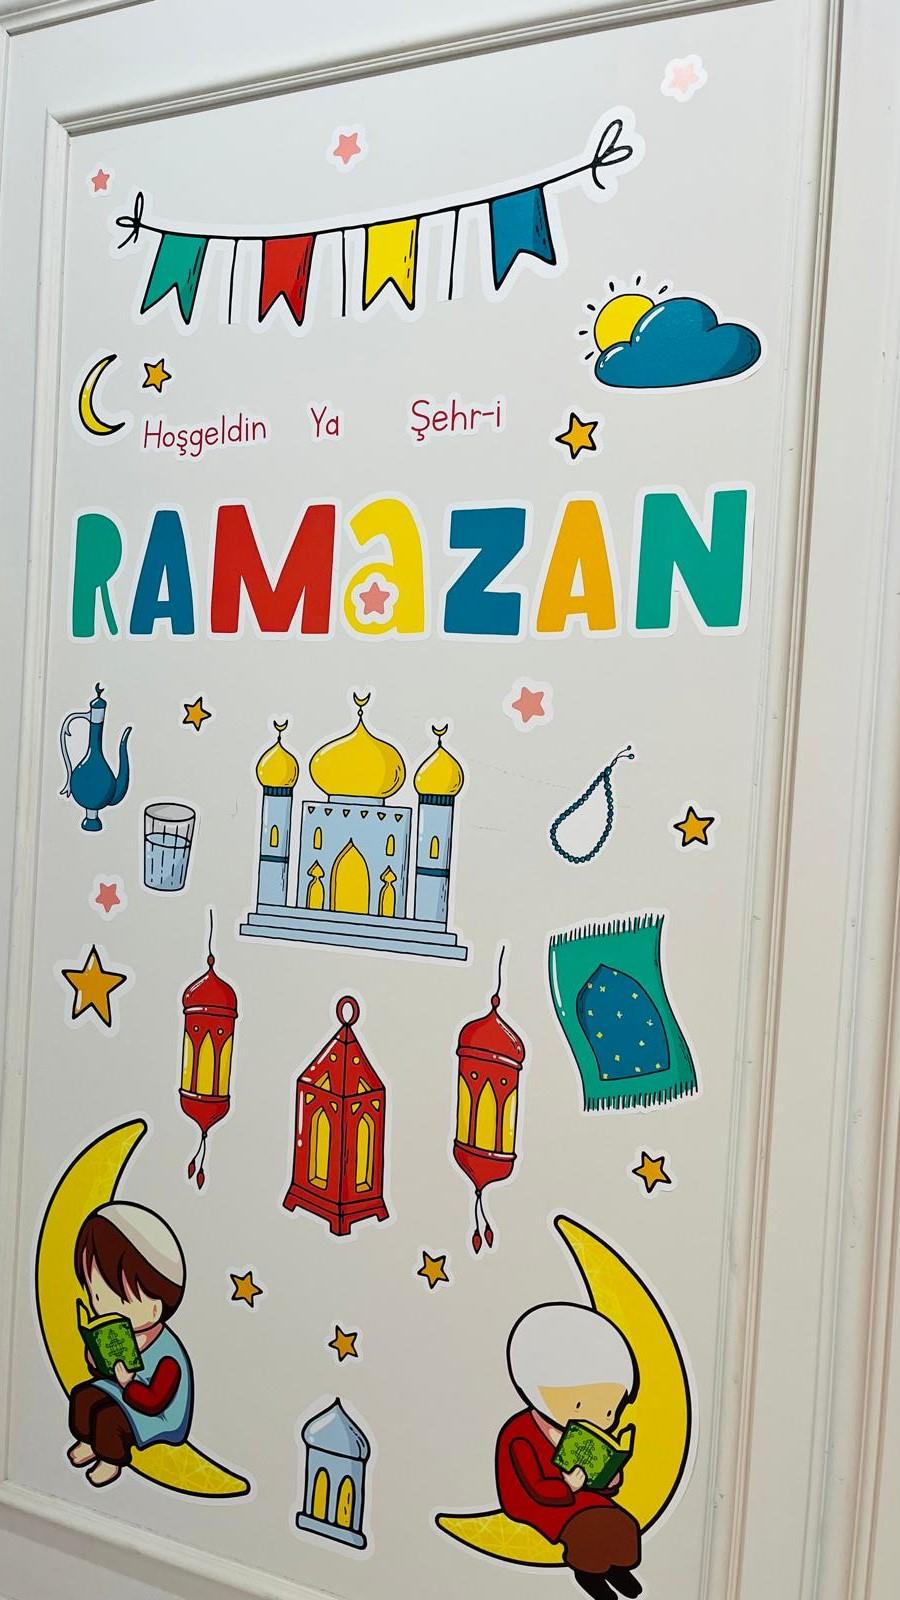 Hoşgeldin Ya Şehr-i
RAMaZAN